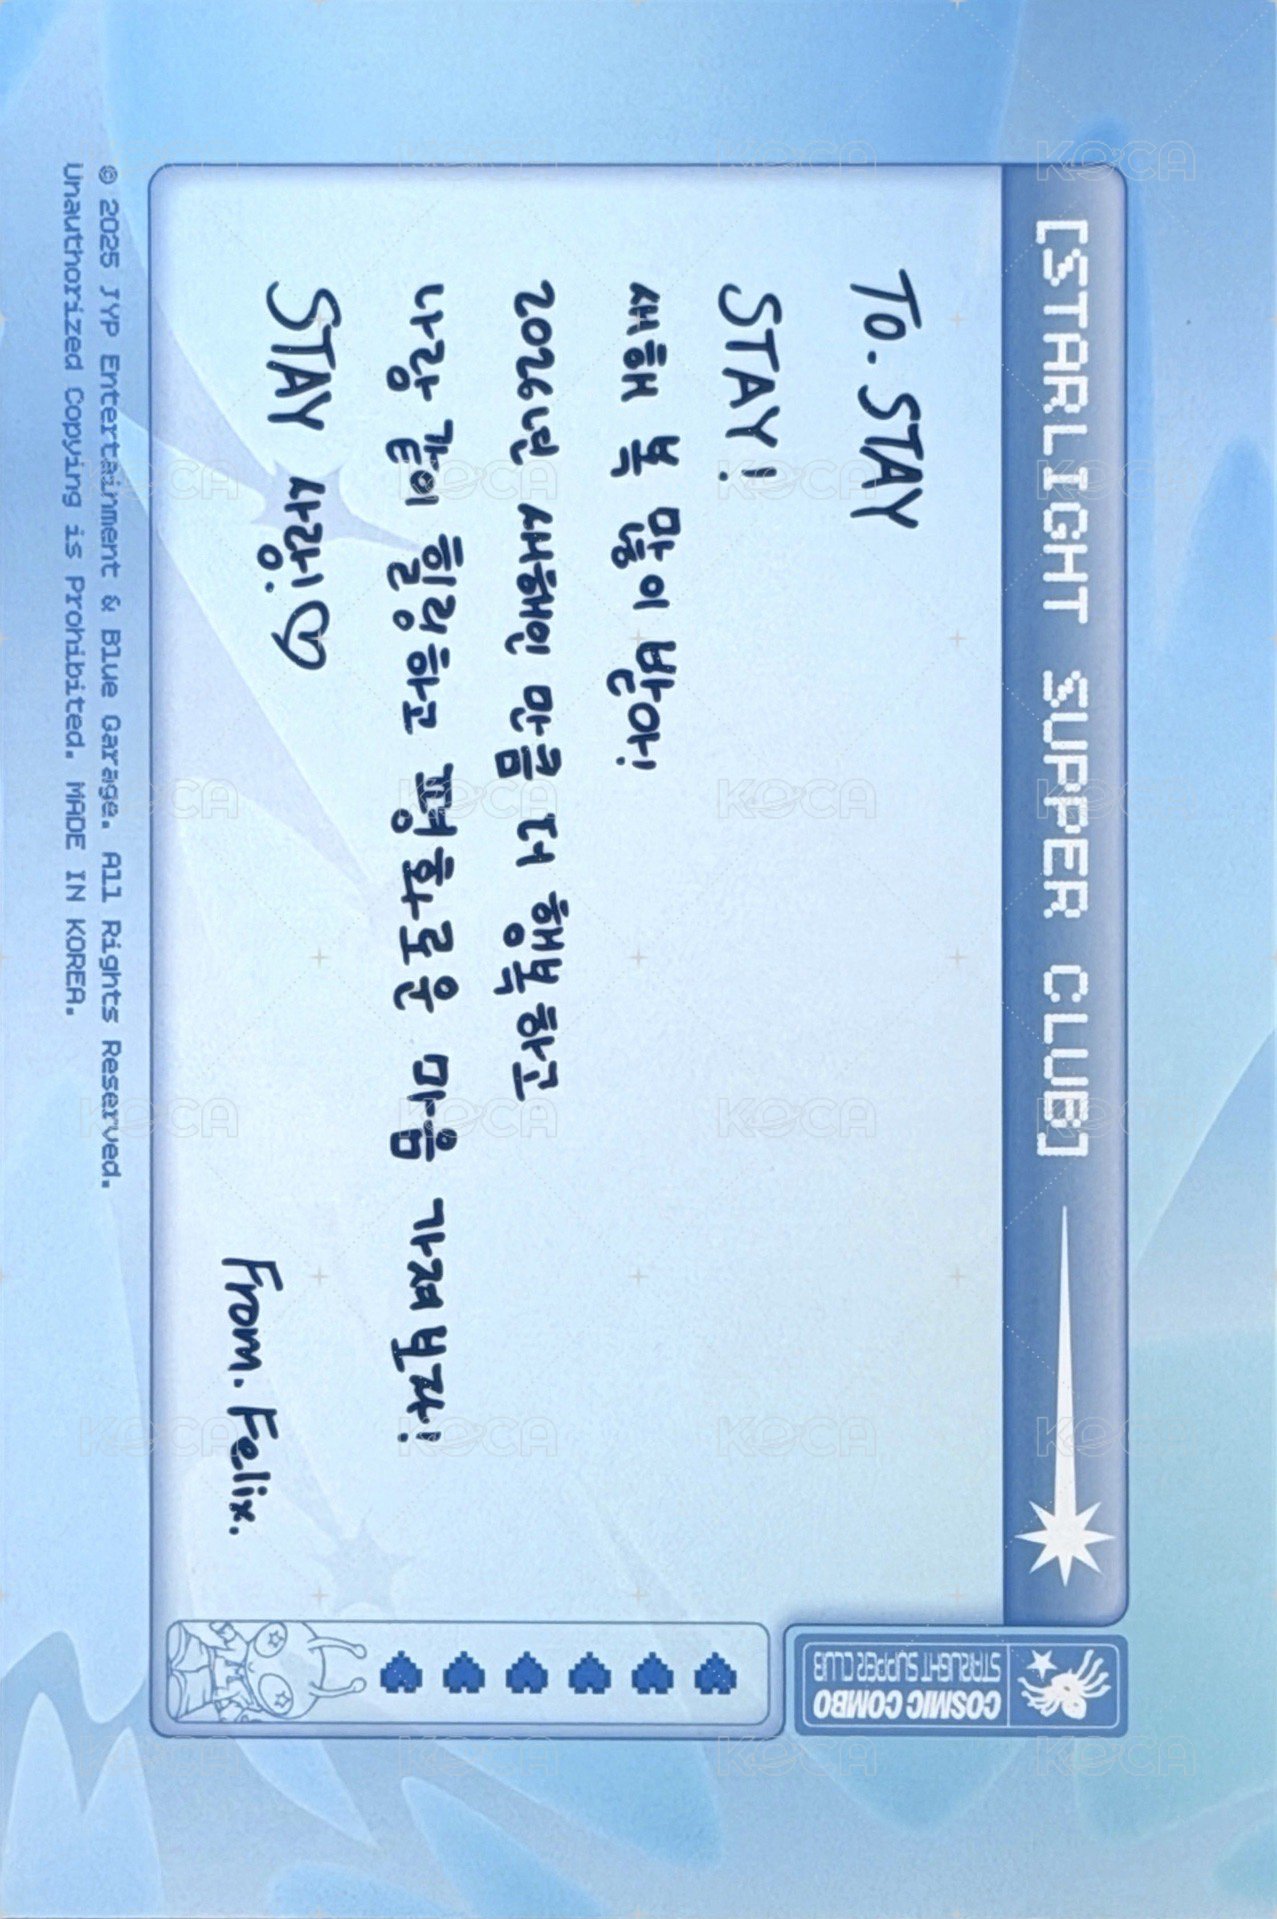 [STARLIGHT SUPPER CLUB]
To. STAY
STAY!
새해 복 많이 받아!
2026년 새해인 만큼 더 행복하고
나랑 같이 힐링하고 평화로운 마음 가져보자!
STAY 사랑해!♡
From. Felix.
COSMIC COMBO
STARLIGHT SUPPER CLUB
© 2025 JYP Entertainment & Blue Garage. All Rights Reserved.
Unauthorized Copying is Prohibited. MADE IN KOREA.
KOCA